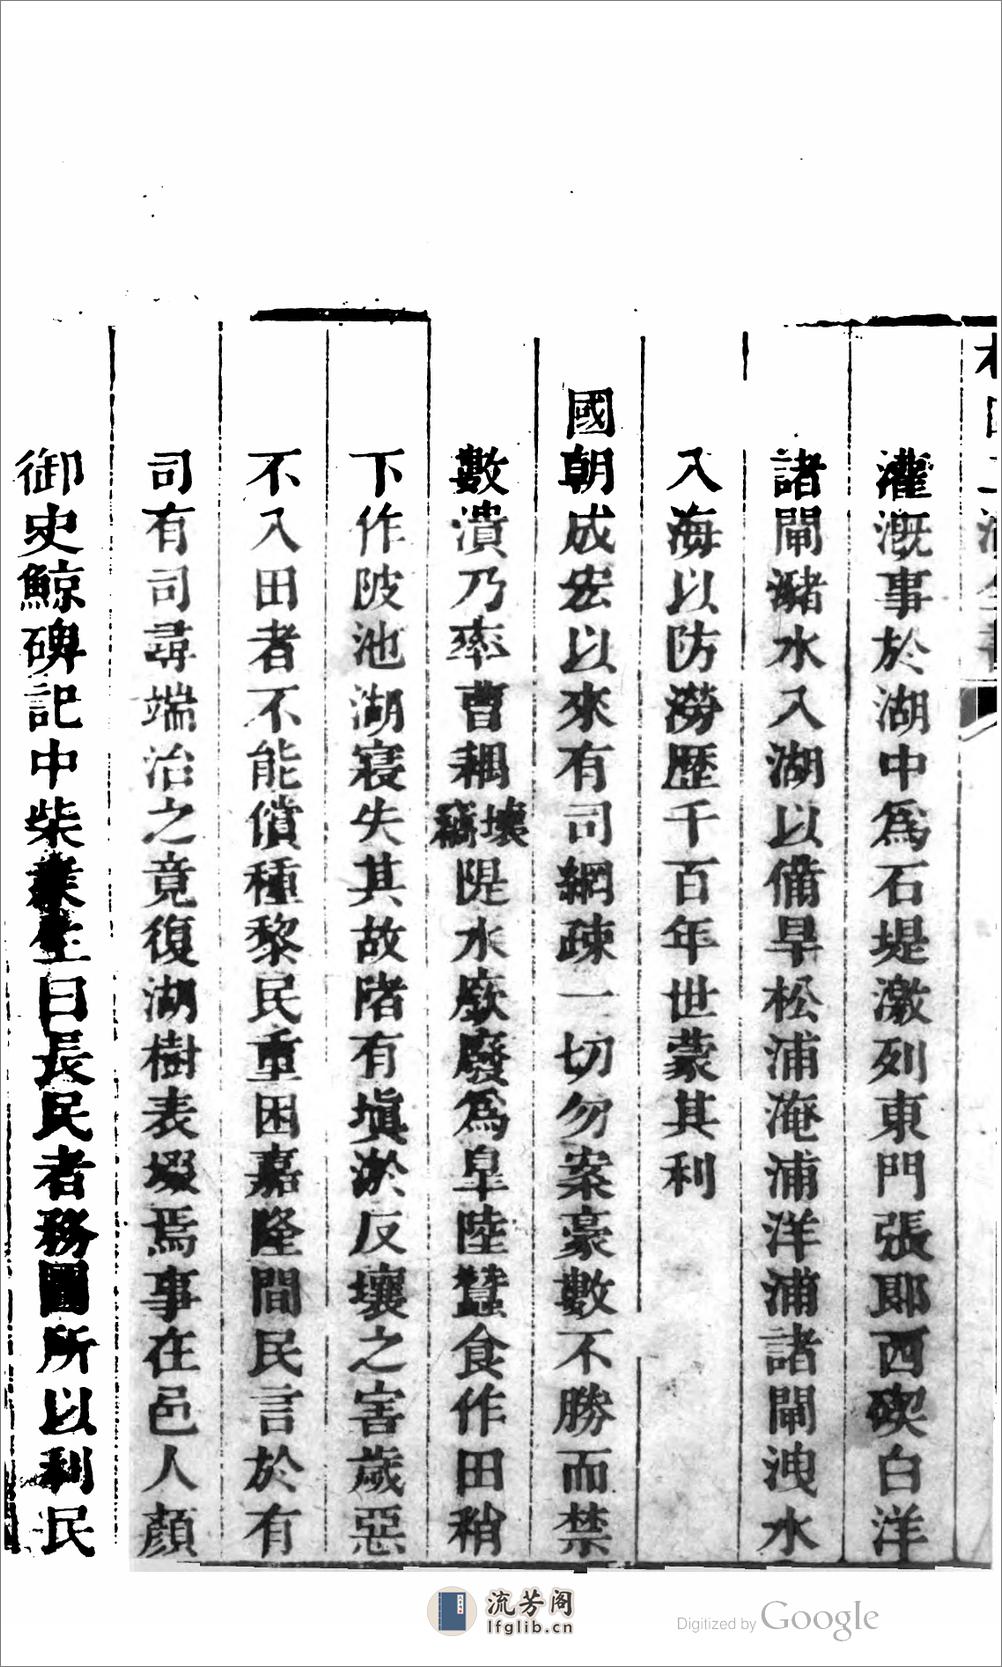 灌溉事於湖中為石堤激列東門張郎西碶白洋
諸閘瀦水入湖以備旱松浦淹浦洋浦諸閘洩水
入海以防澇歷千百年世蒙其利
國朝成宏以來有司網疎一切勿案豪數不勝而禁
數潰乃率曹耦竊壞隄水廞廢為皐陸蠶食作田稍
下作陂池湖寖失其故陼有塡淤反壤之害歲惡
不入田者不能償種黎民重困嘉隆間民言於有
司有司尋端治之竟復湖樹表埱焉事在邑人顏
御史鯨碑記中柴業生曰長民者務圖所以利民
流芳阁
lfglib.cn
Digitized by Google